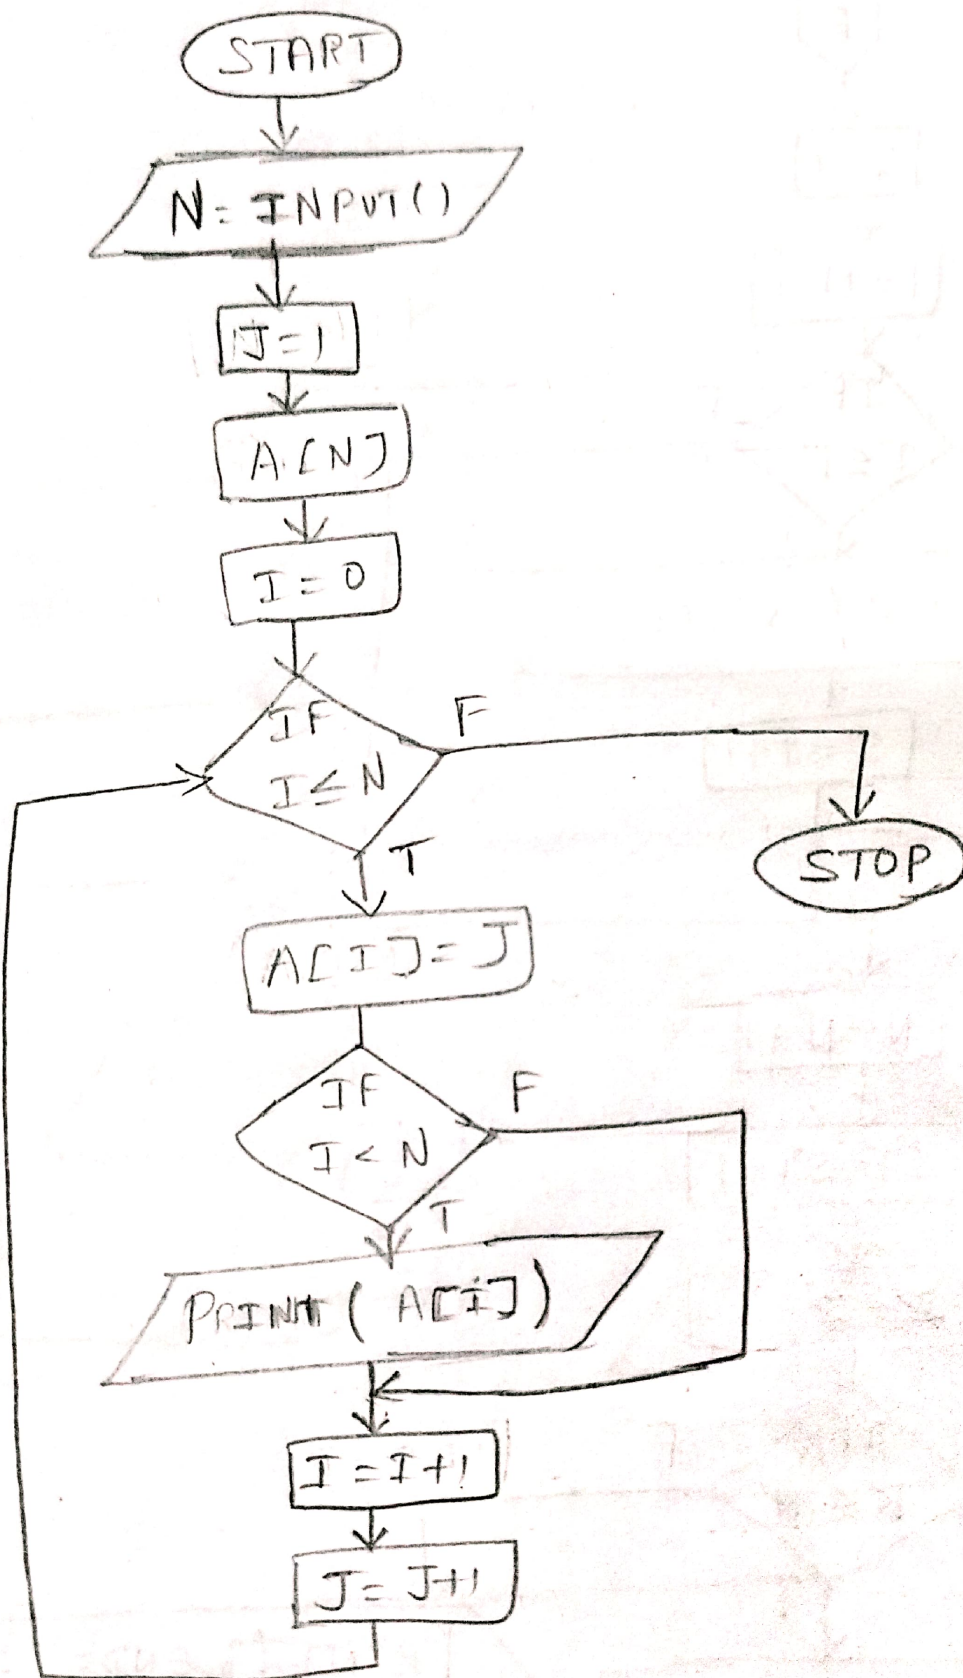 START
N= INPUT()
J=1
A[N]
I=0
IF
I≤N
F
STOP
T
A[I]=J
IF
I<N
F
T
PRINT( A[I])
I=I+1
J=J+1